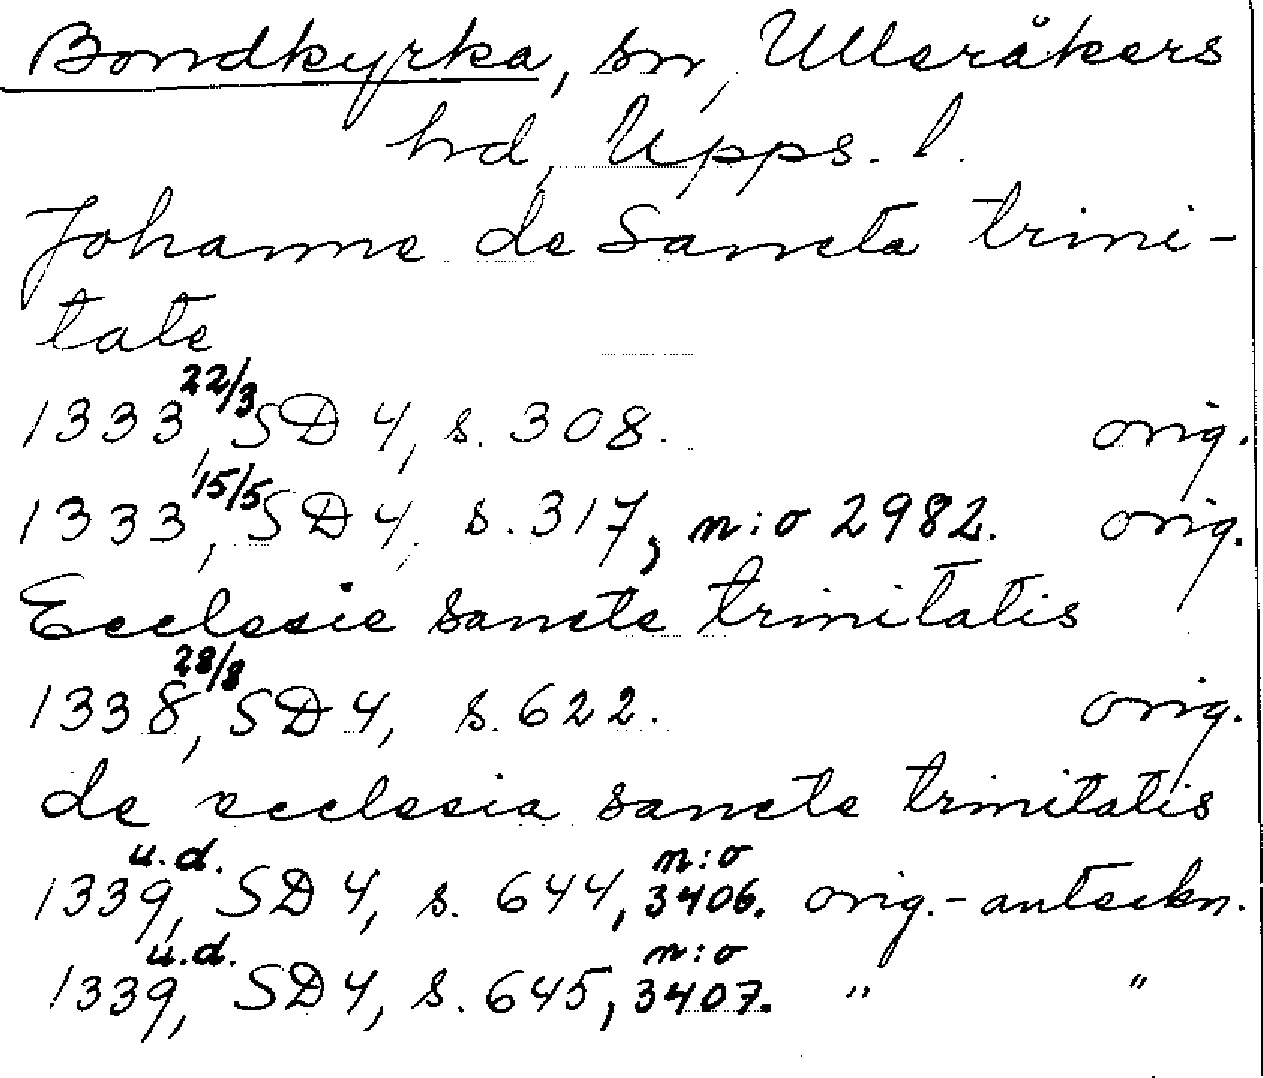 Bondkyrka, sn, Ulleråkers
hd, Upps. l.
Johanne de Sancta trini-
tate
1333 22/3, SD 4, s. 308. orig.
1333 15/5, SD 4, s. 317, n:o 2982. orig.
Ecclesie sancte trinitatis
1338 28/8, SD 4, s. 622. orig.
de ecclesia sancte trinitatis
1339 u.d., SD 4, s. 644, n:o 3406. orig.-anteckn.
1339 u.d., SD 4, s. 645, n:o 3407. " "